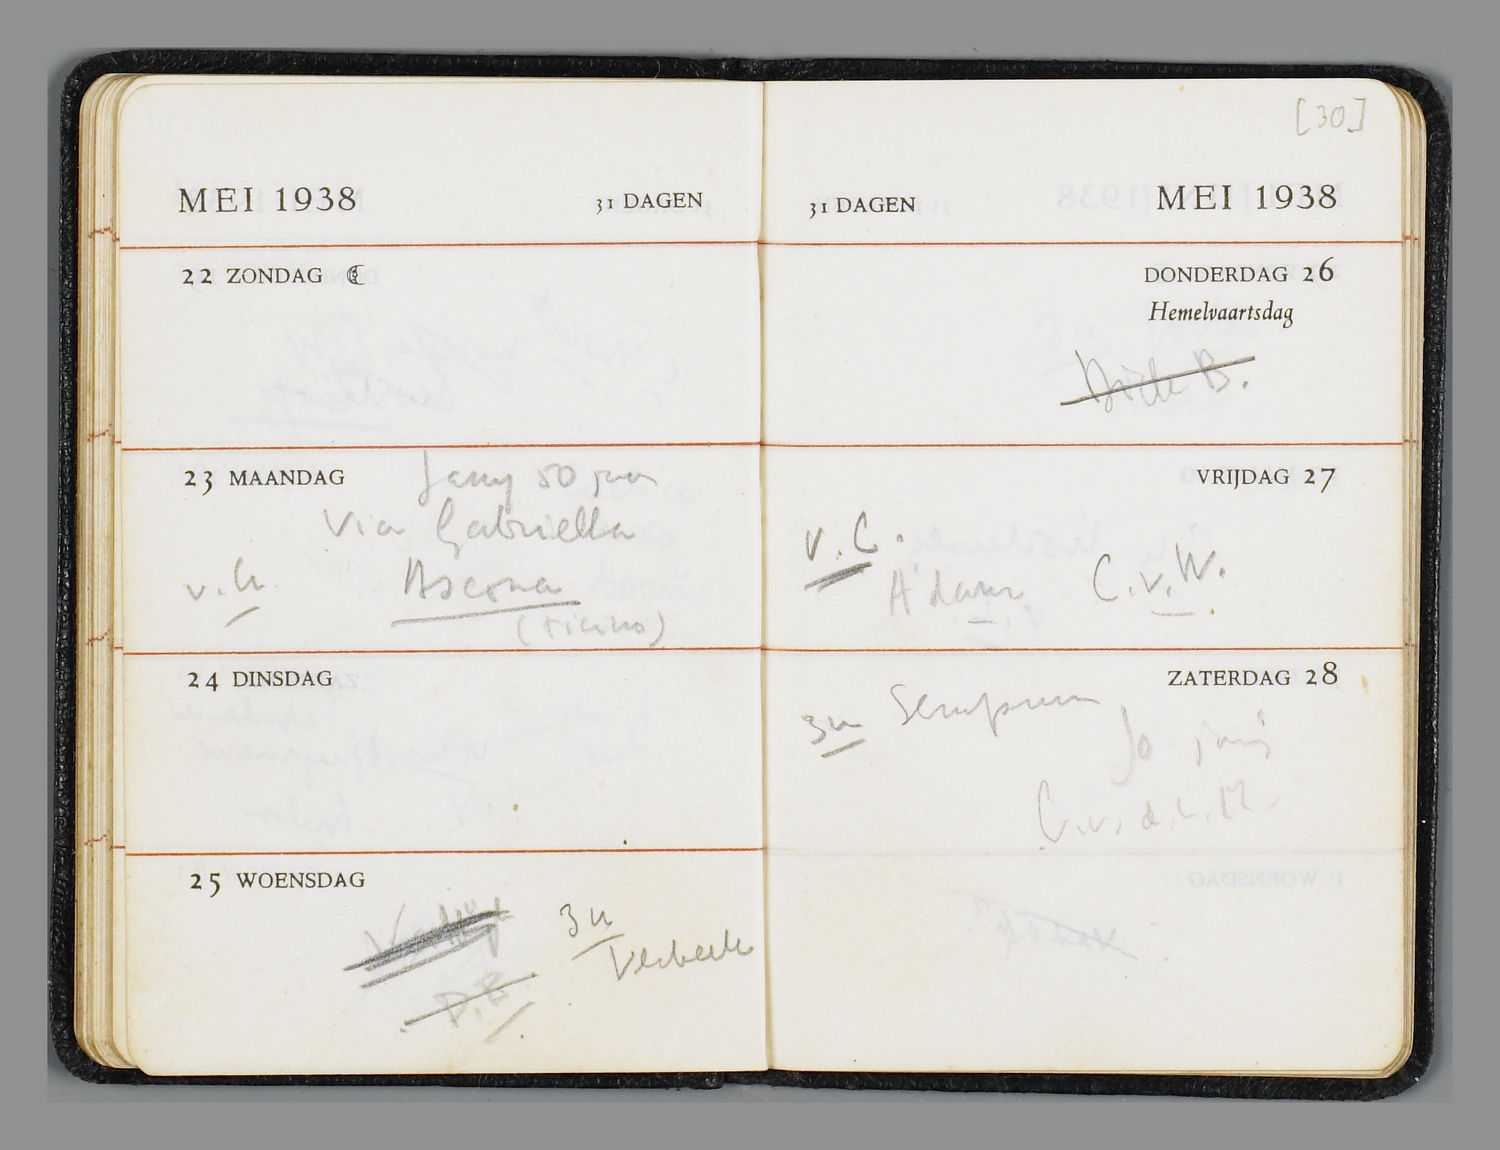 MEI 1938 31 DAGEN
22 ZONDAG
23 MAANDAG
50
Via Gabriella
v.
Ascona
(Ticino)
24 DINSDAG
25 WOENSDAG
3 u
[30]
31 DAGEN MEI 1938
DONDERDAG 26
Hemelvaartsdag
B.
VRIJDAG 27
v.C.
A'dam C.v.W.
ZATERDAG 28
3u
Jo